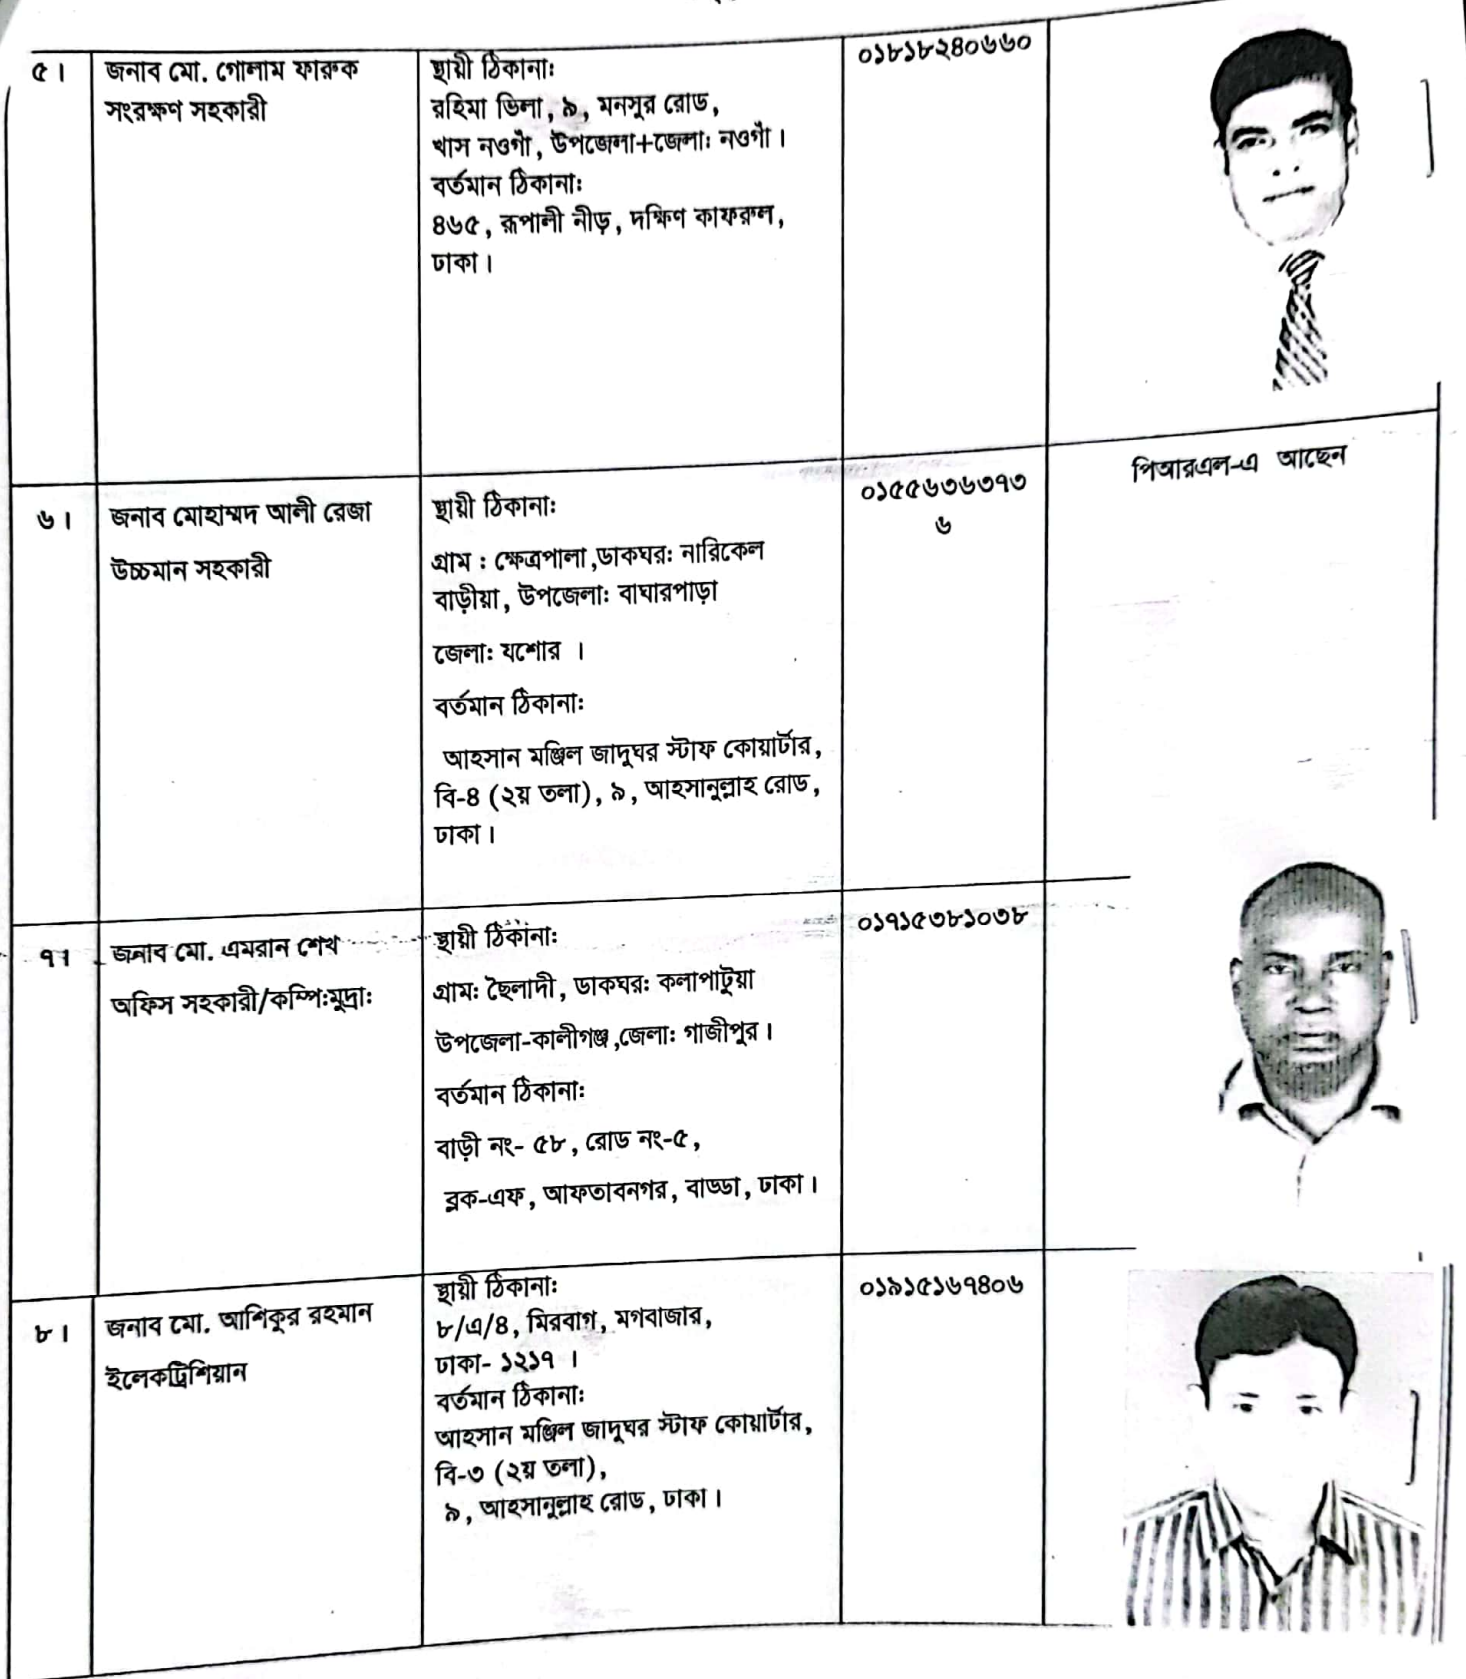 ৫। জনাব মো. গোলাম ফারুক
সংরক্ষণ সহকারী
স্থায়ী ঠিকানা:
রহিমা ভিলা, ৯, মনসুর রোড,
খাস নওগাঁ, উপজেলা+জেলা: নওগাঁ।
বর্তমান ঠিকানা:
৪৬৫, রূপালী নীড়, দক্ষিণ কাফরুল,
ঢাকা।
০১৮১৮২৪০৬৬০
৬। জনাব মোহাম্মদ আলী রেজা
উচ্চমান সহকারী
স্থায়ী ঠিকানা:
গ্রাম : ক্ষেত্রপালা,ডাকঘর: নারিকেল
বাড়ীয়া, উপজেলা: বাঘারপাড়া
জেলা: যশোর ।
বর্তমান ঠিকানা:
আহসান মঞ্জিল জাদুঘর স্টাফ কোয়ার্টার,
বি-৪ (২য় তলা), ৯, আহসানুল্লাহ রোড,
ঢাকা।
০১৫৫৬৩৬৩৭৩
৬
পিআরএল-এ আছেন
৭। জনাব মো. এমরান শেখ
অফিস সহকারী/কম্পি:মুদ্রা:
স্থায়ী ঠিকানা:
গ্রাম: ছৈলাদী, ডাকঘর: কলাপাটুয়া
উপজেলা-কালীগঞ্জ,জেলা: গাজীপুর।
বর্তমান ঠিকানা:
বাড়ী নং- ৫৮, রোড নং-৫,
ব্লক-এফ, আফতাবনগর, বাড্ডা, ঢাকা।
০১৭১৫৩৮১০৩৮
৮। জনাব মো. আশিকুর রহমান
ইলেকট্রিশিয়ান
স্থায়ী ঠিকানা:
৮/এ/৪, মিরবাগ, মগবাজার,
ঢাকা- ১২১৭ ।
বর্তমান ঠিকানা:
আহসান মঞ্জিল জাদুঘর স্টাফ কোয়ার্টার,
বি-৩ (২য় তলা),
৯, আহসানুল্লাহ রোড, ঢাকা।
০১৯১৫১৬৭৪০৬